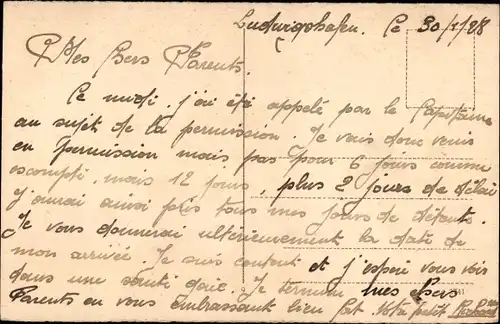 Ludwigshafen. Ce 30/1/28
Mes Bers Parents.
Ce midi, j'ai été appelé par le Capitaine
au sujet de la permission. Je vais donc venir
en permission mais pas pour 6 jours comme
escompté, mais 12 jours, plus 2 jours de délai
j'aurai aussi pris tous mes jours de détente.
Je vous donnerai ultérieurement la date de
mon arrivée. Je suis content et j'espère vous voir
dans une santé. Je termine mes chers
Parents en vous embrassant bien fort. Votre petit